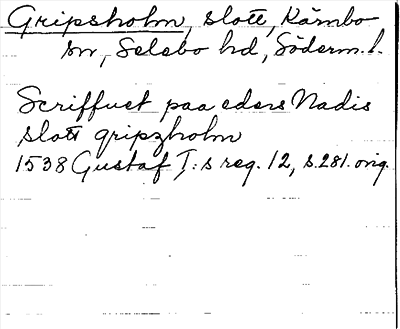 Gripsholm, slott, Kärnbo
sn, Selebo hd, Söderm. l.
Scriffuet paa eders Nadis
slott gripzholm
1538 Gustaf I:s reg. 12, s. 281. orig.